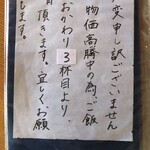 変申し訳ございません
物価高騰中の為、ご飯
おかわり3杯目より、
頂きます。宜しくお願
します。